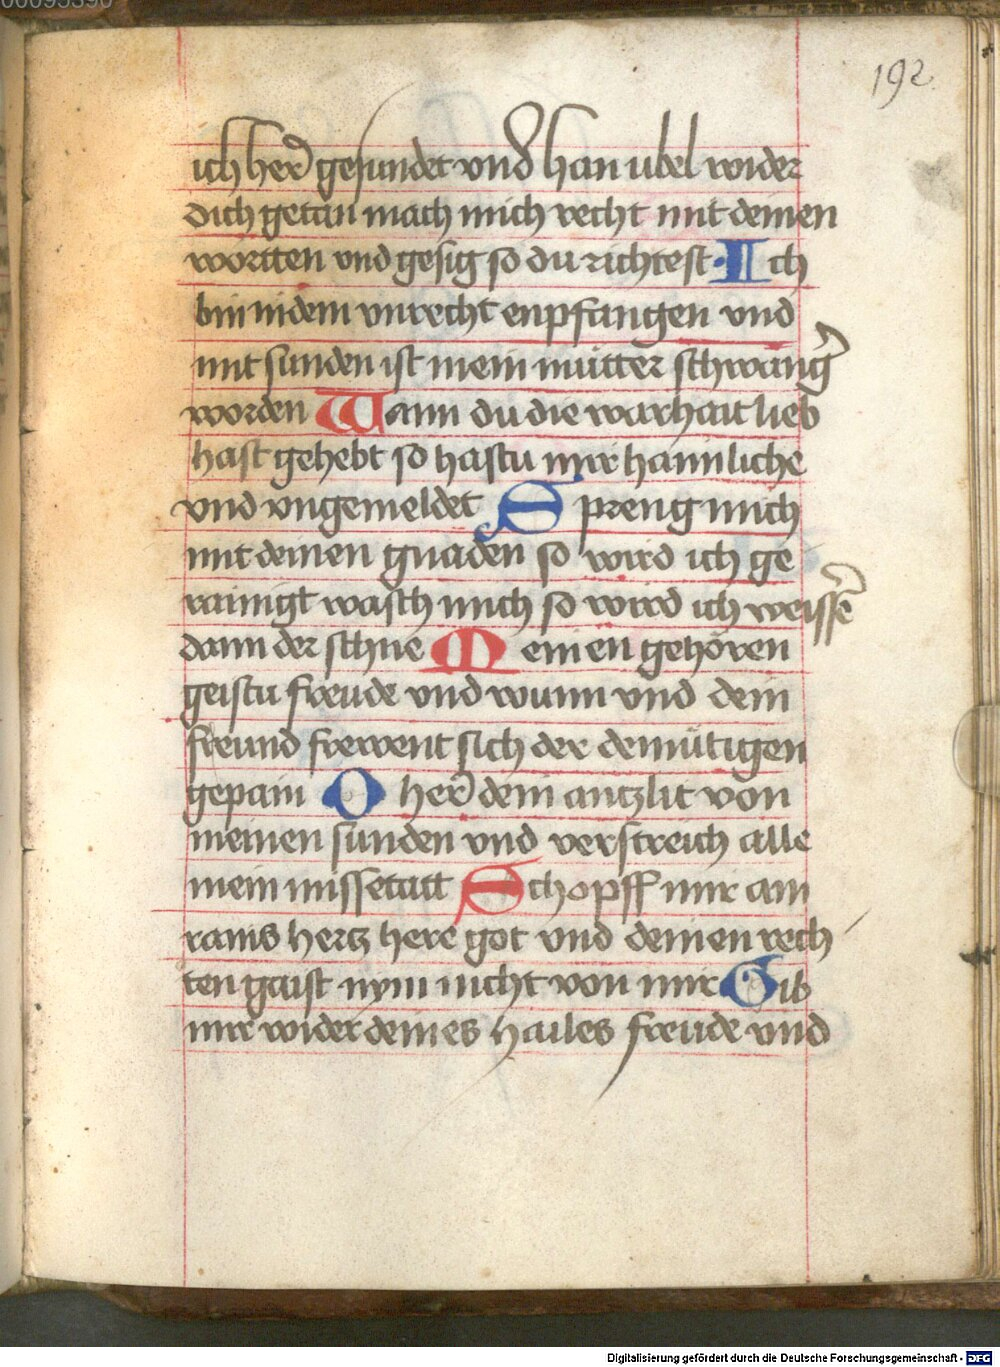 00095390
192
ich her̄ gesundet vnd han ubel wider
dich getan mach mich recht mit deinen
wörtten vnd gesig so du richtest · Ich
bin in dem vnrecht enpfangen vnd
mit sunden ist mein mutter schwang̃
worden Wann du die warhait lieb
hast gehebt so hastu mir haimliche
vnd vngemeldet Spreng mich
mit deinen gnaden so wird ich ge
rainigt wasch mich so wird ich weisse̅
dann der schne Meinen gehören
geistu freude vnd wunn vnd dein
freund frewent sich der demütigen
gepain O her̄ dein antzlit von
meinen sunden vnd verstreich alle
mein missetatt Schopff mir ain
rains hertz here got vnd deinen rech
ten gaist nym nicht von mir Gib
mir wider deines hailes freude vnd
Digitalisierung gefördert durch die Deutsche Forschungsgemeinschaft - DFG